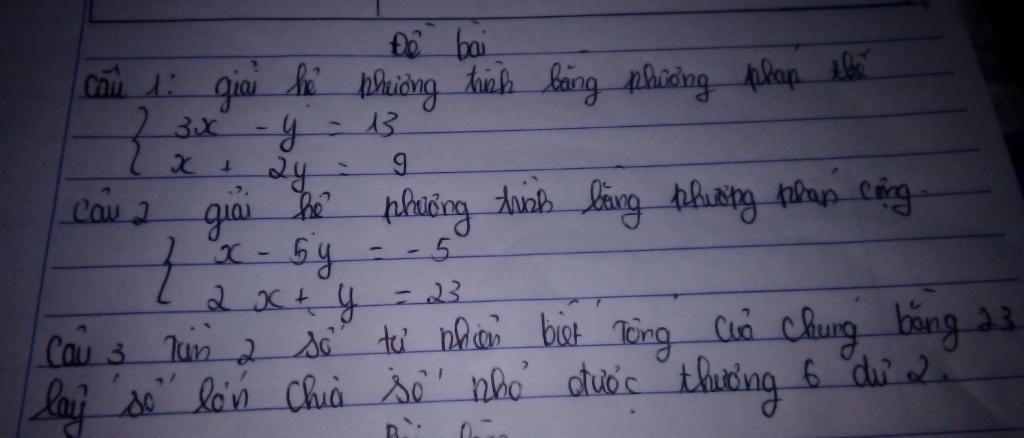 Đề bài
Câu 1: giải hệ phương trình bằng phương pháp thế
3x - y = 13
x + 2y = 9
Câu 2 giải hệ phương trình bằng phương pháp cộng.
x - 5y = -5
2x + y = 23
Câu 3 Tìm 2 số tự nhiên biết Tổng của chúng bằng 23
lấy số lớn chia số nhỏ được thương 6 dư 2.